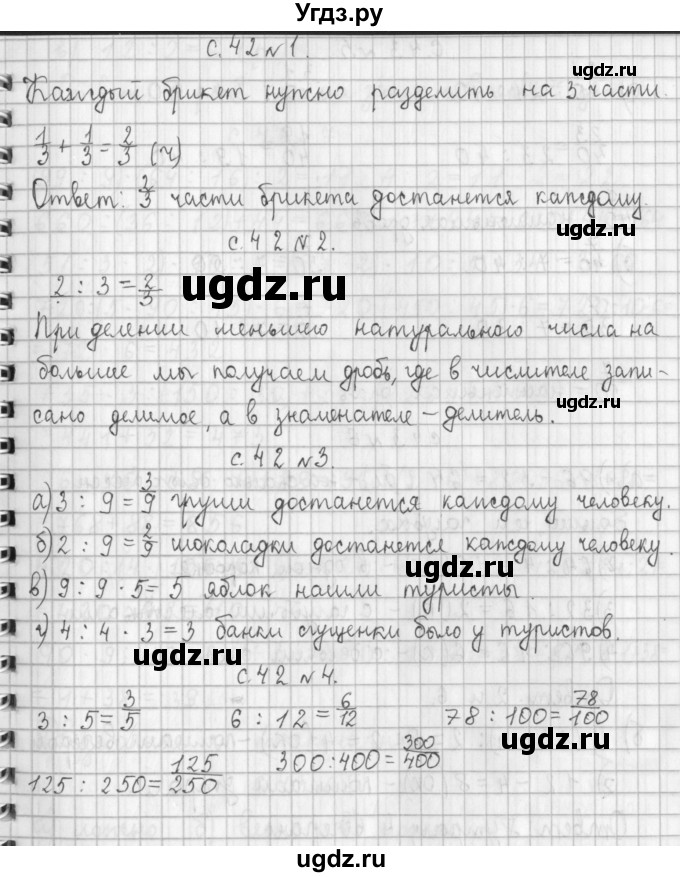 Угдз.ру
с. 42 №1.
ugdz.ru
Каждый брикет нужно разделить на 3 части.
1/3 + 1/3 = 2/3 (ч)
ugdz.ru
Ответ: 2/3 части брикета достанется каждому.
ugdz.ru
с. 42 №2.
2 : 3 = 2/3
ugdz.ru
ugdz.ru
При делении меньшего натурального числа на
большее мы получаем дробь, где в числителе запи-
сано делимое, а в знаменателе – делитель.
ugdz.ru
с. 42 №3.
а) 3 : 9 = 3/9 груши достанется каждому человеку.
б) 2 : 9 = 2/9 шоколадки достанется каждому человеку.
ugdz.ru
в) 9 : 9 · 5 = 5 яблок нашли туристы.
г) 4 : 4 · 3 = 3 банки сгущенки было у туристов.
ugdz.ru
с. 42 №4.
3 : 5 = 3/5 6 : 12 = 6/12 78 : 100 = 78/100
ugdz.ru
125 : 250 = 125/250 300 : 400 = 300/400
ugdz.ru